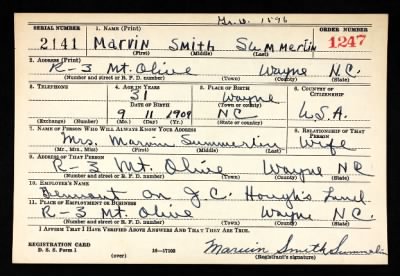 SERIAL NUMBER 1. NAME (Print) ORDER NUMBER
2141 Marvin Smith Summerlin 1247
(First) (Middle) (Last)
2. ADDRESS (Print)
R-3 Mt. Olive Wayne N.C.
(Number and street or R. F. D. number) (Town) (County) (State)
3. TELEPHONE 4. AGE IN YEARS 5. PLACE OF BIRTH 6. COUNTRY OF CITIZENSHIP
31 Wayne
DATE OF BIRTH (Town or county)
9 11 1909 NC U.S.A.
(Exchange) (Number) (Mo.) (Day) (Yr.) (State or country)
7. NAME OF PERSON WHO WILL ALWAYS KNOW YOUR ADDRESS 8. RELATIONSHIP OF THAT PERSON
Mrs. Marvin Summerlin Wife
(Mr., Mrs., Miss) (First) (Middle) (Last)
9. ADDRESS OF THAT PERSON
R-3 Mt Olive Wayne NC
(Number and street or R. F. D. number) (Town) (County) (State)
10. EMPLOYER'S NAME
on J.C. Hough's Land
11. PLACE OF EMPLOYMENT OR BUSINESS
R-3 Mt Olive Wayne NC.
(Number and street or R. F. D. number) (Town) (County) (State)
I AFFIRM THAT I HAVE VERIFIED ABOVE ANSWERS AND THAT THEY ARE TRUE.
REGISTRATION CARD
D. S. S. Form 1 (over) 16-17105 Marvin Smith Summerlin
(Registrant's signature)